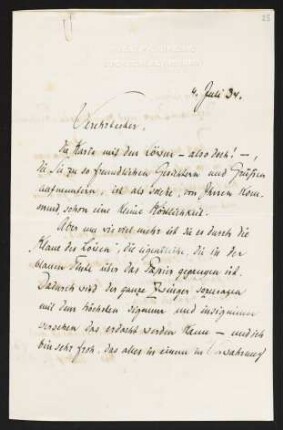 4. Juli 34.
Verehrtester,
die Karte mit dem Löwen – also doch! –,
die Sie zu so freundlichen Gedanken und Grüßen
aufmuntern, ist als solche, von Ihnen
schon eine kleine Köstlichkeit.
Aber um wie viel mehr ist sie es durch die
Klaue des Löwen, die eigentliche, die in der
blauen Tinte über das Papier gegangen ist.
Dadurch wird der ganze Zwinger sozusagen
mit dem höchsten signum und insignium
versehen das erdacht werden kann – und ich
bin sehr froh, das alles in einem in Verwahrung